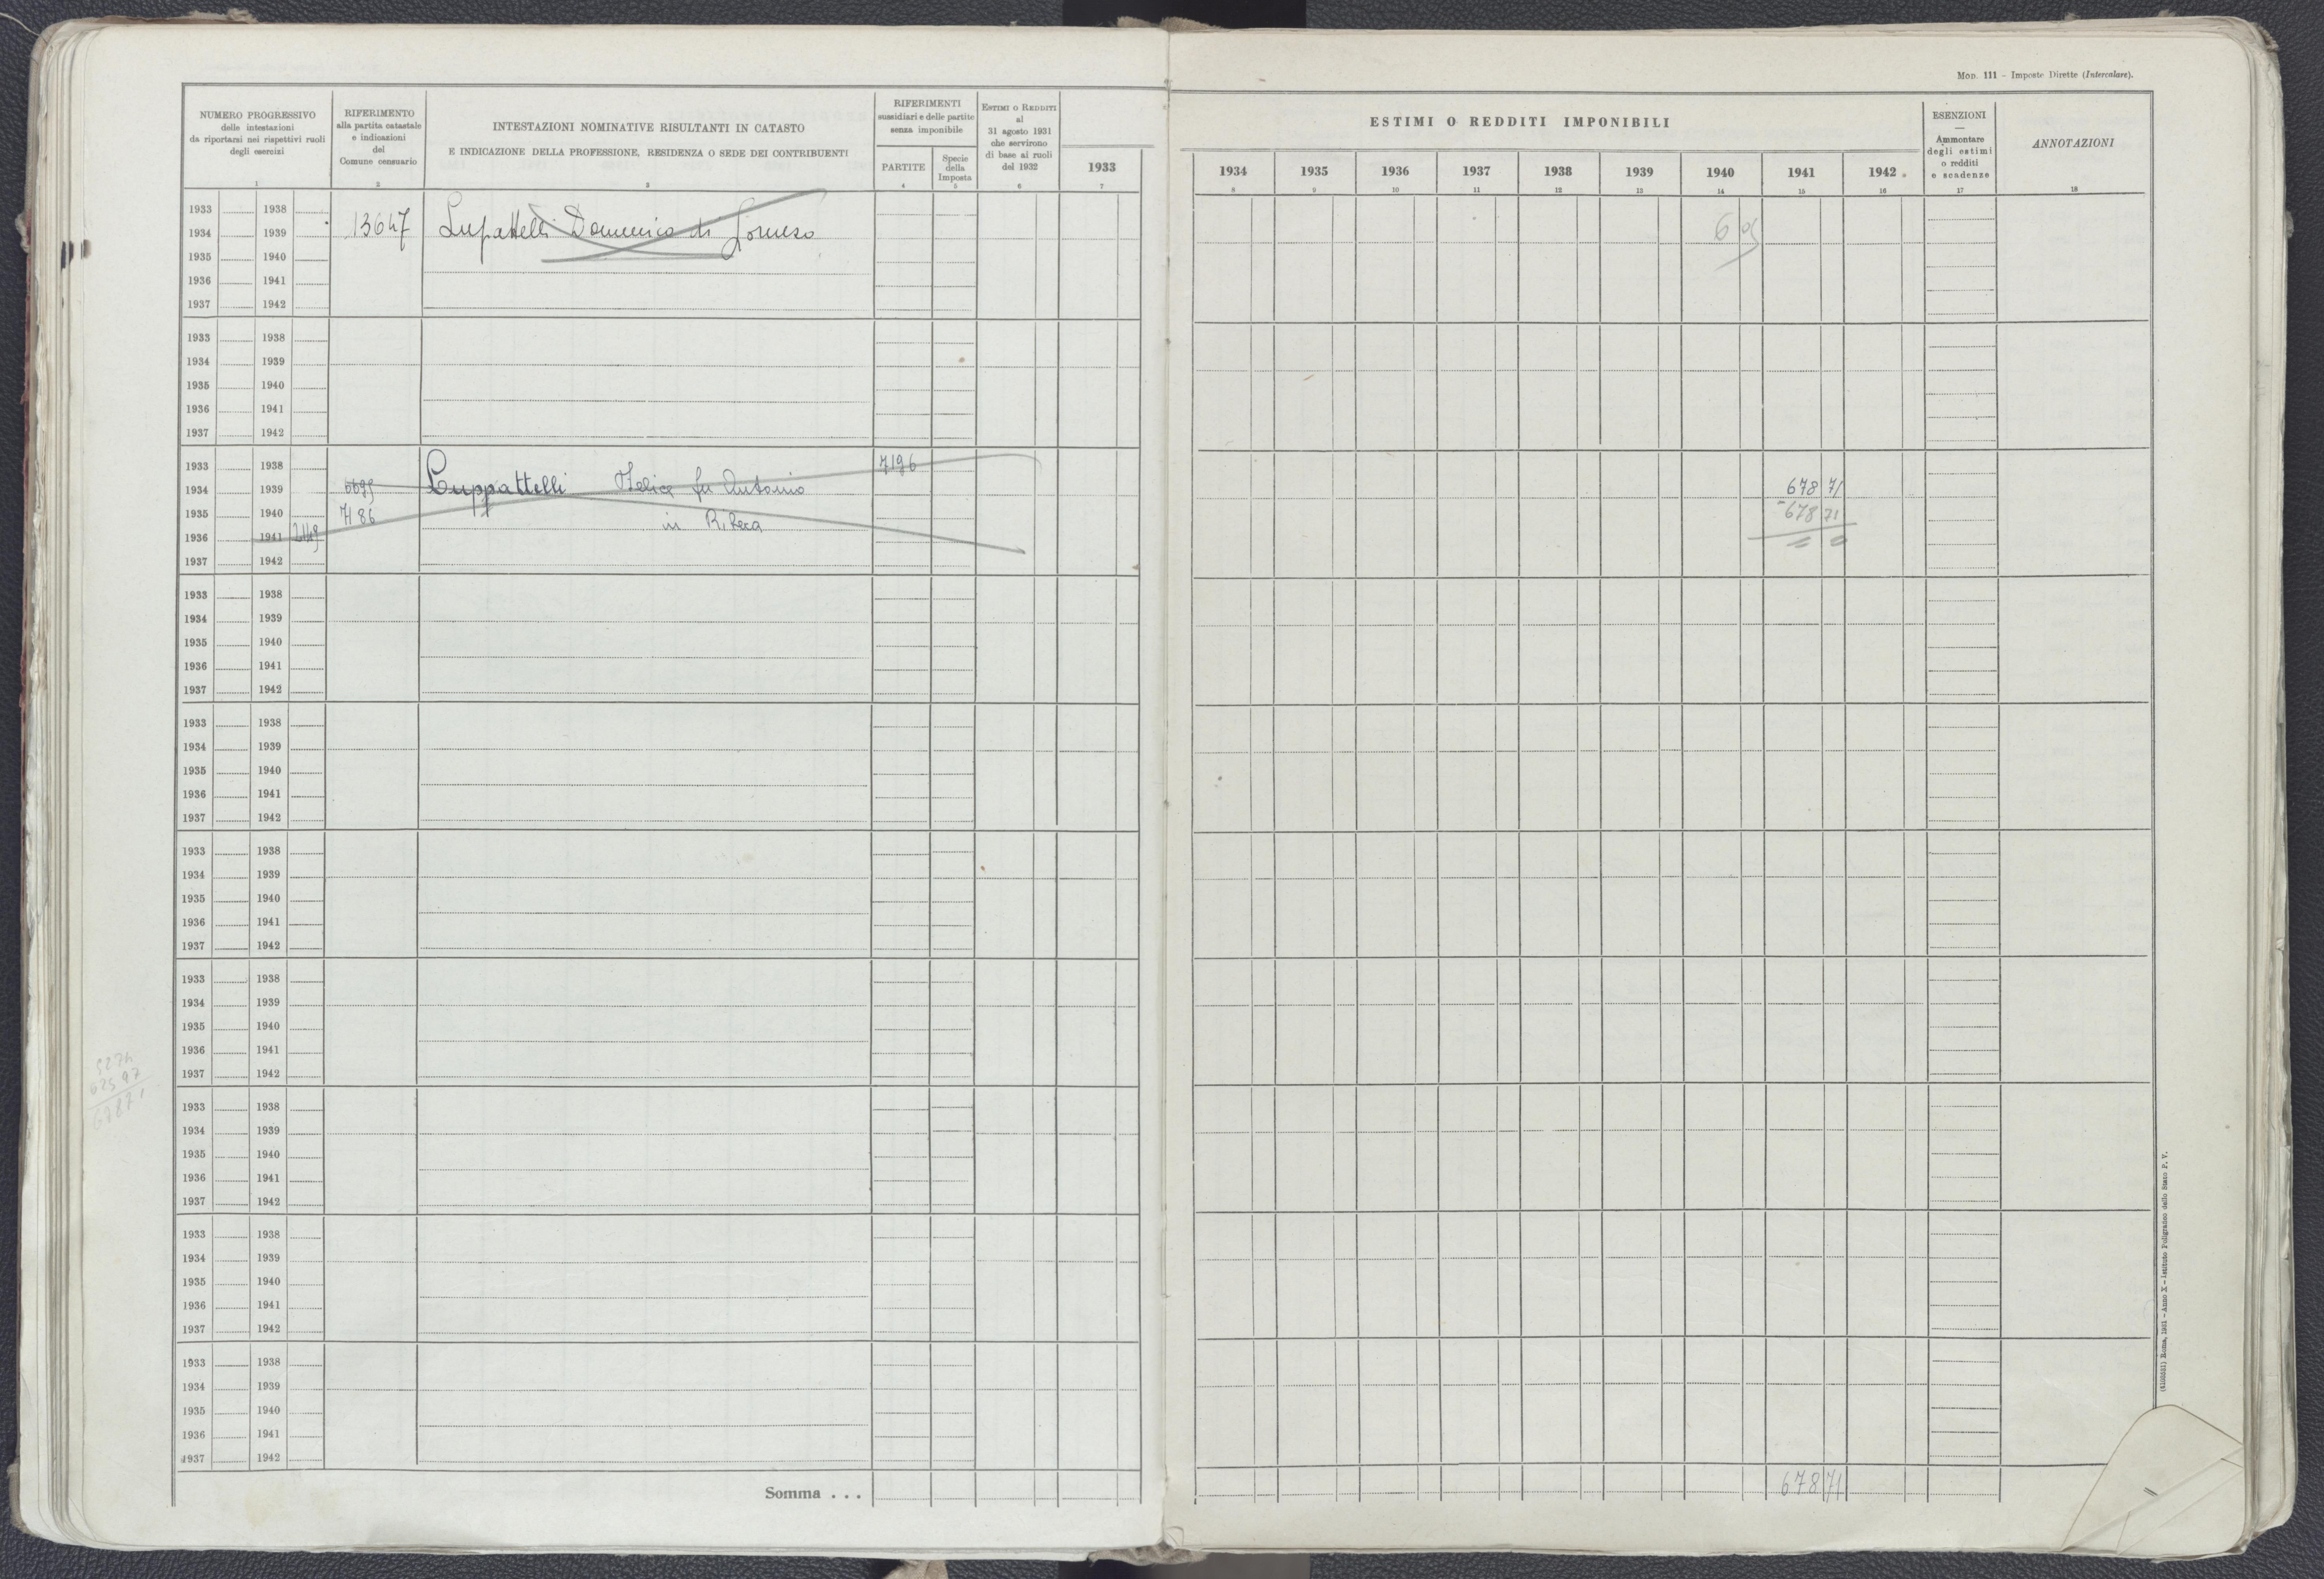 Mod. 111 - Imposte Dirette (Intercalare).
NUMERO PROGRESSIVO
delle intestazioni
da riportarsi nei rispettivi ruoli
degli esercizi
1
RIFERIMENTO
alla partita catastale
e indicazioni
del
Comune censuario
2
INTESTAZIONI NOMINATIVE RISULTANTI IN CATASTO
E INDICAZIONE DELLA PROFESSIONE, RESIDENZA O SEDE DEI CONTRIBUENTI
3
RIFERIMENTI
sussidiari e delle partite
senza imponibile
PARTITE
4
Specie
della
Imposta
5
ESTIMI O REDDITI
al
31 agosto 1931
che servirono
di base ai ruoli
del 1932
6
1933
7
ESTIMI O REDDITI IMPONIBILI
1934 1935 1936 1937 1938 1939 1940 1941 1942
8 9 10 11 12 13 14 15 16
ESENZIONI
—
Ammontare
degli estimi
o redditi
e scadenze
17
ANNOTAZIONI
18
1933 1938
1934 1939 13647 Lupattelli Domenico di 6
1935 1940
1936 1941
1937 1942
1933 1938
1934 1939
1935 1940
1936 1941
1937 1942
1933 1938 7196
1934 1939 Luppattelli Felice fu Antonio 678 71
1935 1940 7186 in 678 71
1936 1941
1937 1942
1933 1938
1934 1939
1935 1940
1936 1941
1937 1942
1933 1938
1934 1939
1935 1940
1936 1941
1937 1942
1933 1938
1934 1939
1935 1940
1936 1941
1937 1942
1933 1938
1934 1939
1935 1940
1936 1941
1937 1942
1933 1938
1934 1939
1935 1940
1936 1941
1937 1942
1933 1938
1934 1939
1935 1940
1936 1941
1937 1942
1933 1938
1934 1939
1935 1940
1936 1941
1937 1942
Somma . . . 678 71
Roma, 1931 - Anno X - Istituto Poligrafico dello Stato P. V.